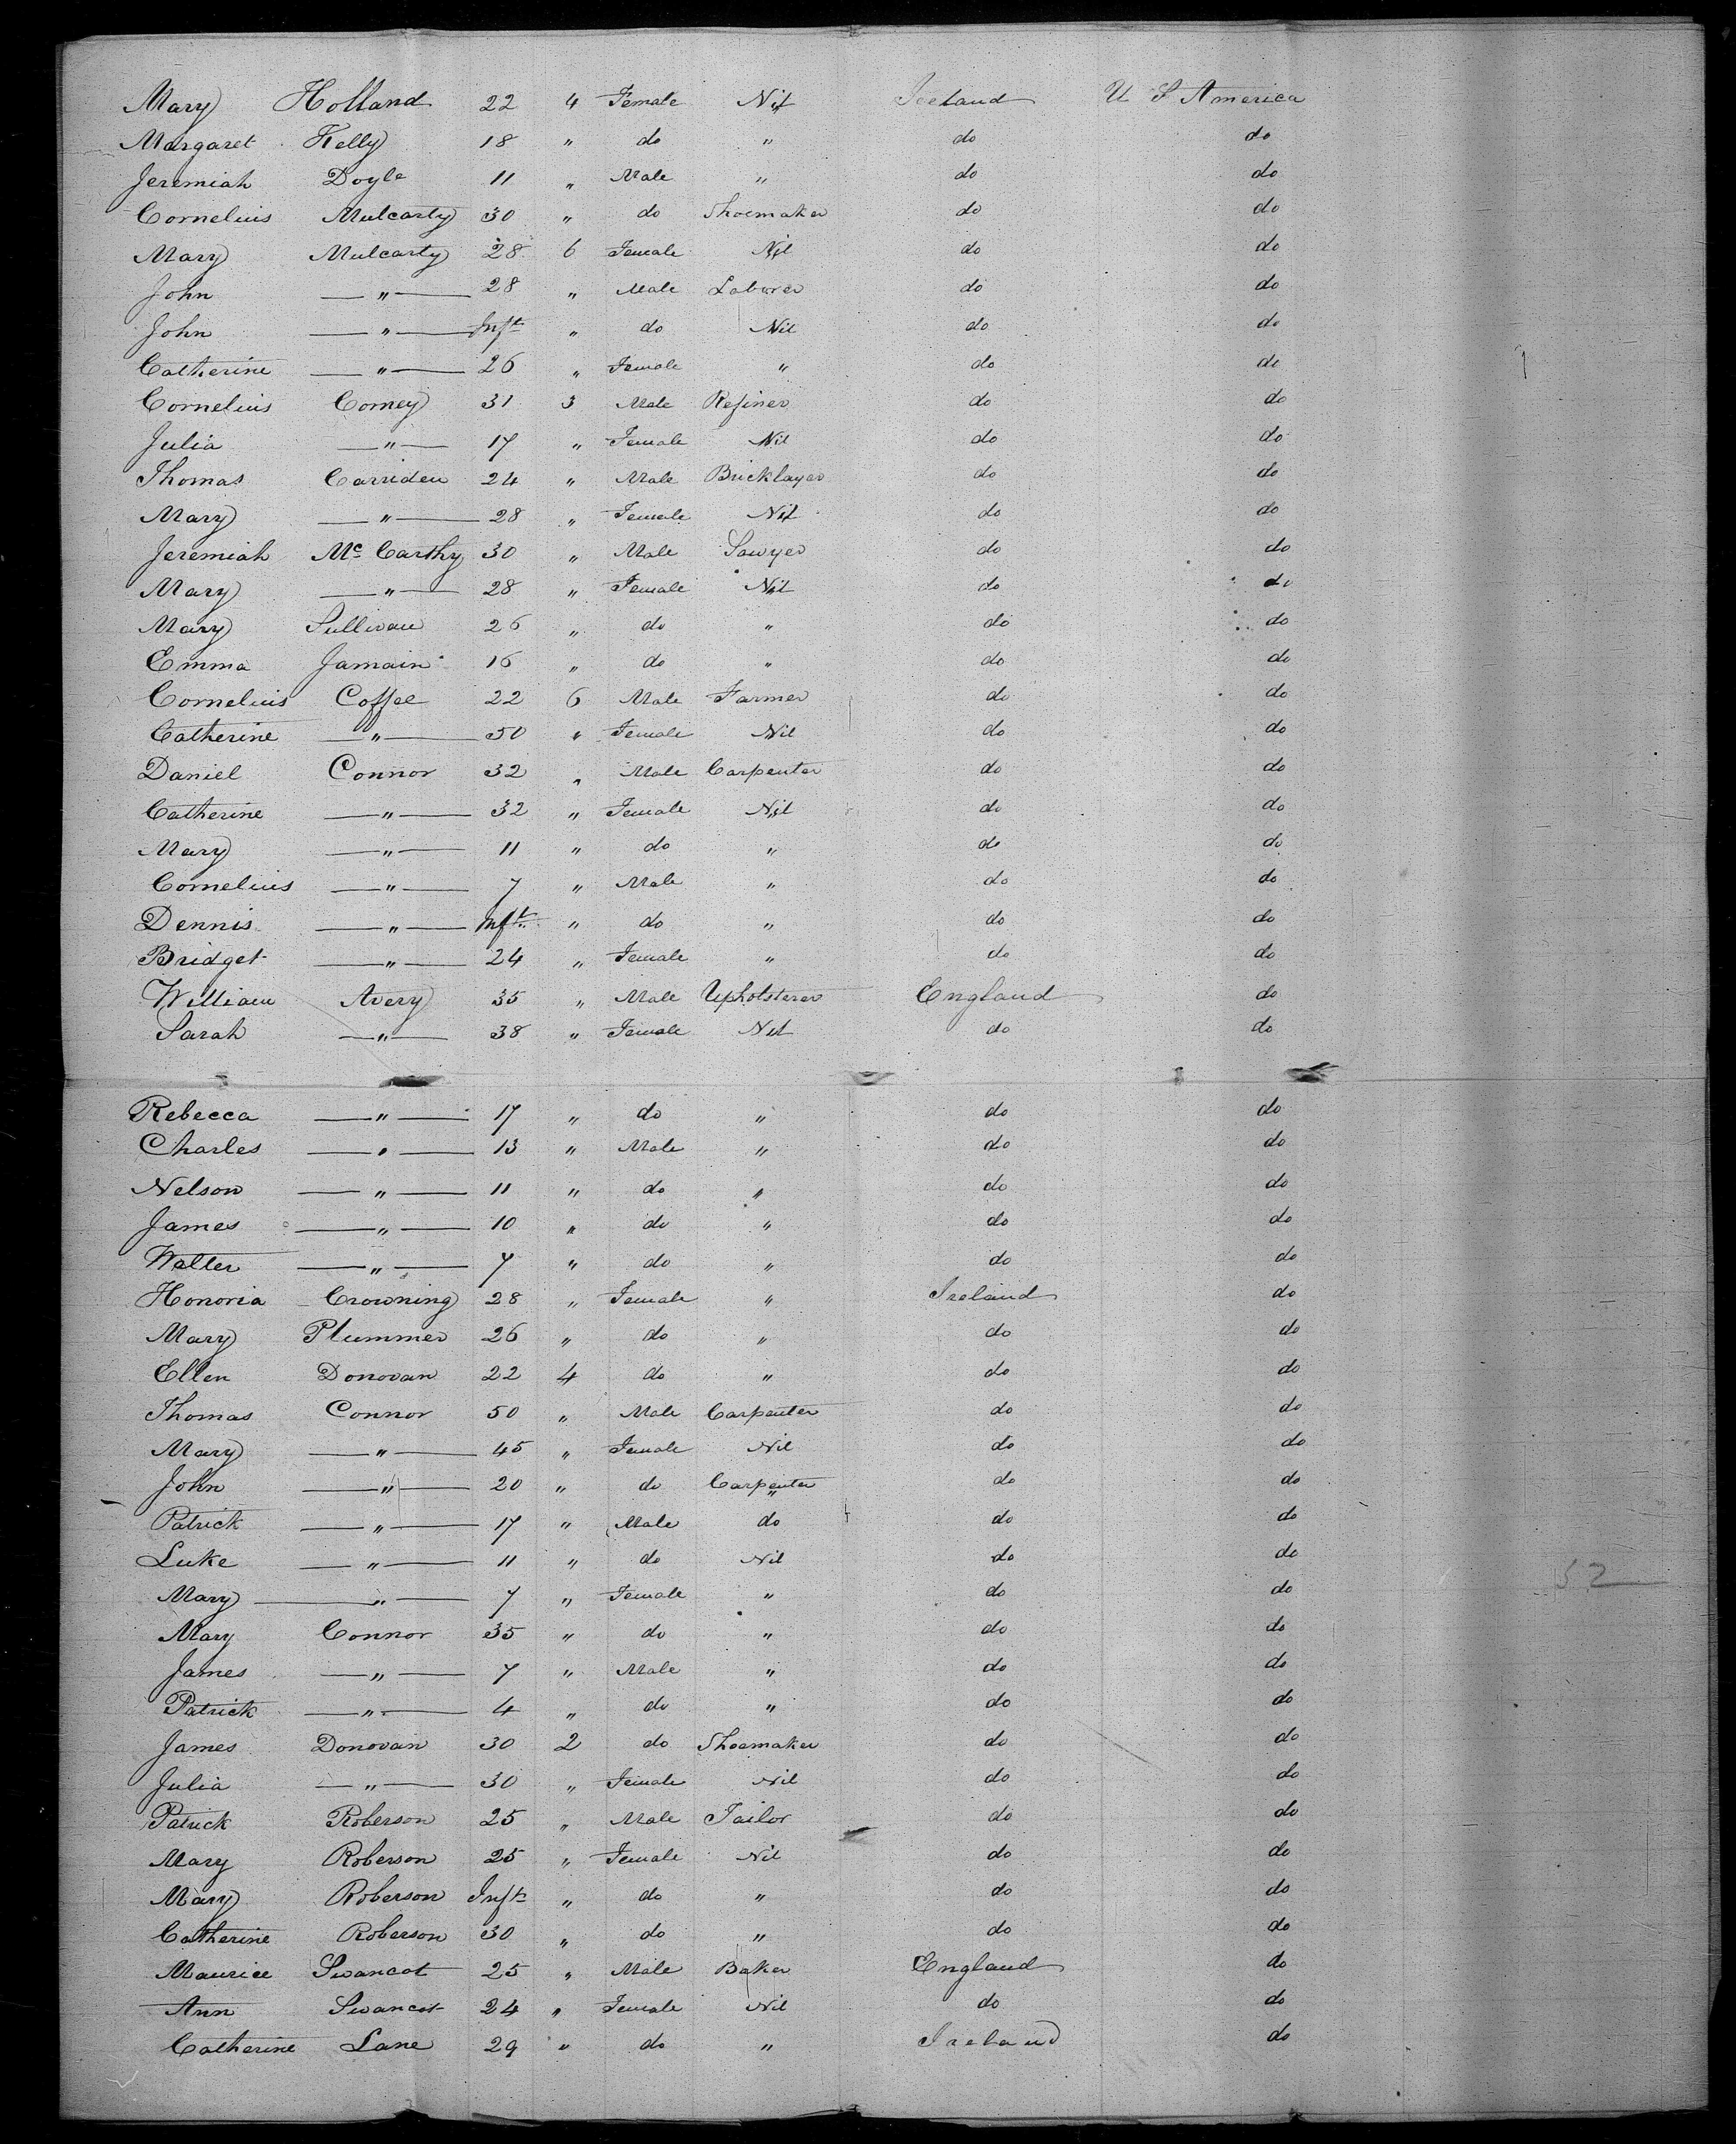 Mary Holland 22 4 Female Nil Ireland U S America
Margaret Kelly 18 " do " do do
Jeremiah Doyle 11 " Male " do do
Cornelius Mulcarty 30 " do Shoemaker do do
Mary Mulcarty 28 6 Female Nil do do
John — " — 28 " Male Laborer do do
John — " — Inft " do Nil do do
Catherine — " — 26 " Female " do do
Cornelius Comey 31 3 Male Refiner do do
Julia — " — 17 " Female Nil do do
Thomas Carriden 24 " Male Bricklayer do do
Mary — " — 28 " Female Nil do do
Jeremiah Mc Carthy 30 " Male Sawyer do do
Mary — " — 28 " Female Nil do do
Mary Sullivan 26 " do " do do
Emma Jamain 16 " do " do do
Cornelius Coffee 22 6 Male Farmer do do
Catherine — " — 50 " Female Nil do do
Daniel Connor 32 " Male Carpenter do do
Catherine — " — 32 " Female Nil do do
Mary — " — 11 " do " do do
Cornelius — " — 7 " Male " do do
Dennis — " — Inft " do " do do
Bridget — " — 24 " Female " do do
William Avery 35 " Male Upholsterer England do
Sarah — " — 38 " Female Nil do do
Rebecca — " — 17 " do " do do
Charles — " — 13 " Male " do do
Nelson — " — 11 " do " do do
James — " — 10 " do " do do
Walter — " — 7 " do " do do
Honoria Crowning 28 " Female " Ireland do
Mary Plummer 26 " do " do do
Ellen Donovan 22 4 do " do do
Thomas Connor 50 " Male Carpenter do do
Mary — " — 45 " Female Nil do do
John — " — 20 " do Carpenter do do
Patrick — " — 17 " Male do do do
Luke — " — 11 " do Nil do do
Mary — " — 7 " Female " do do
Mary Connor 35 " do " do do
James — " — 7 " Male " do do
Patrick — " — 4 " do " do do
James Donovan 30 2 do Shoemaker do do
Julia — " — 30 " Female Nil do do
Patrick Roberson 25 " Male Tailor do do
Mary Roberson 25 " Female Nil do do
Mary Roberson Inft " do " do do
Catherine Roberson 30 " do " do do
Maurice Swancot 25 " Male Baker England do
Ann Swancot 24 " Female Nil do do
Catherine Lane 29 " do " Ireland do
52